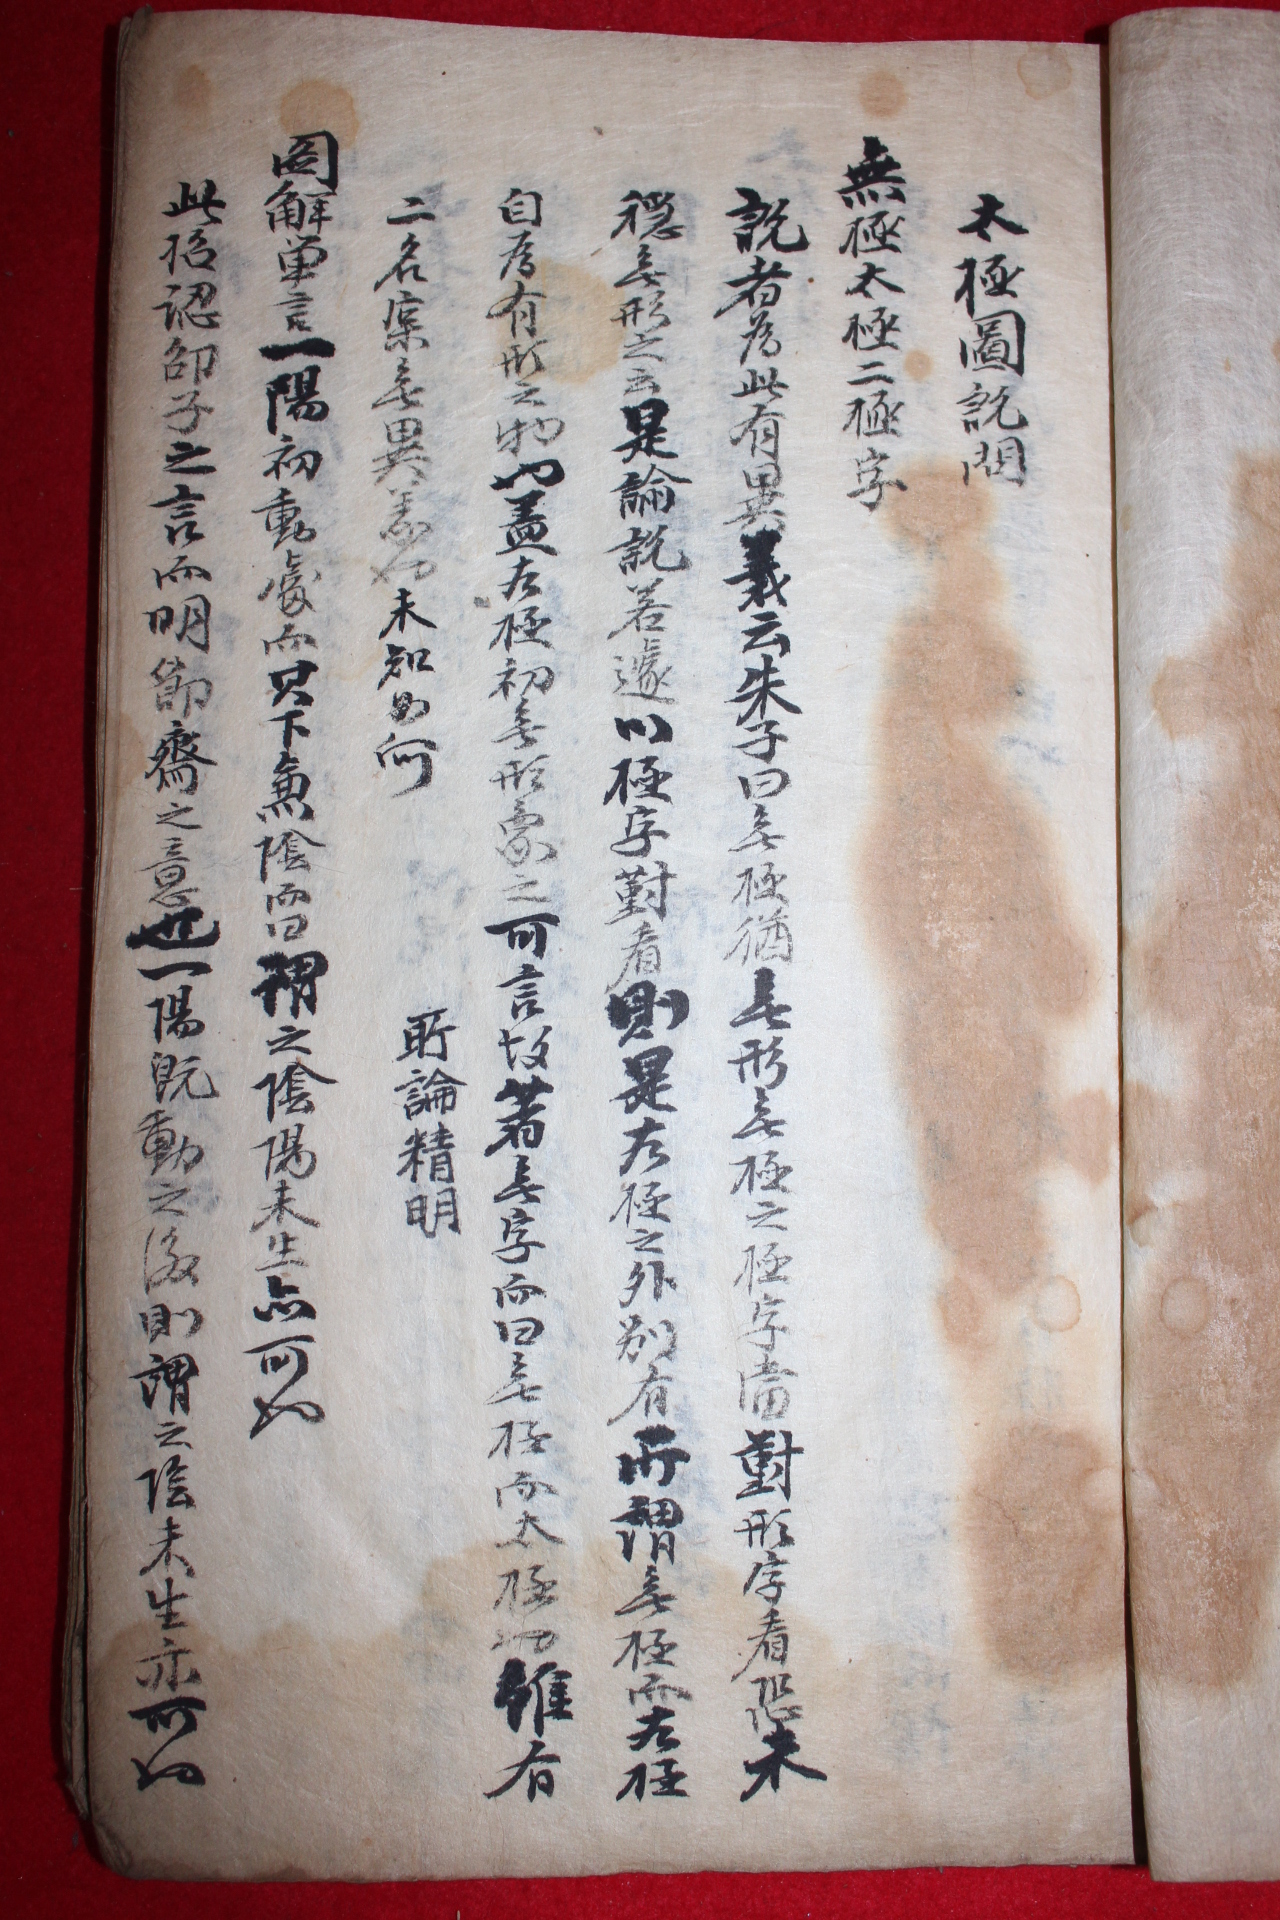 太極圖說問
無極太極二極字
說者為此有異義云朱子曰无極猶无形无極之極字當對形字看恐未
穩无形之云是論說若遽以極字對看則是太極之外別有所謂无極而太極
自為有形之物也盖太極初无形象之可言故著无字而曰无極而太極也雖有
二名實无異義也未知如何
所論精明
圖解單言一陽初動處而只下無陰而曰謂之陰陽未生亦可也
此後認邵子之言而明節齋之意也一陽旣動之後則謂之陰未生亦可也